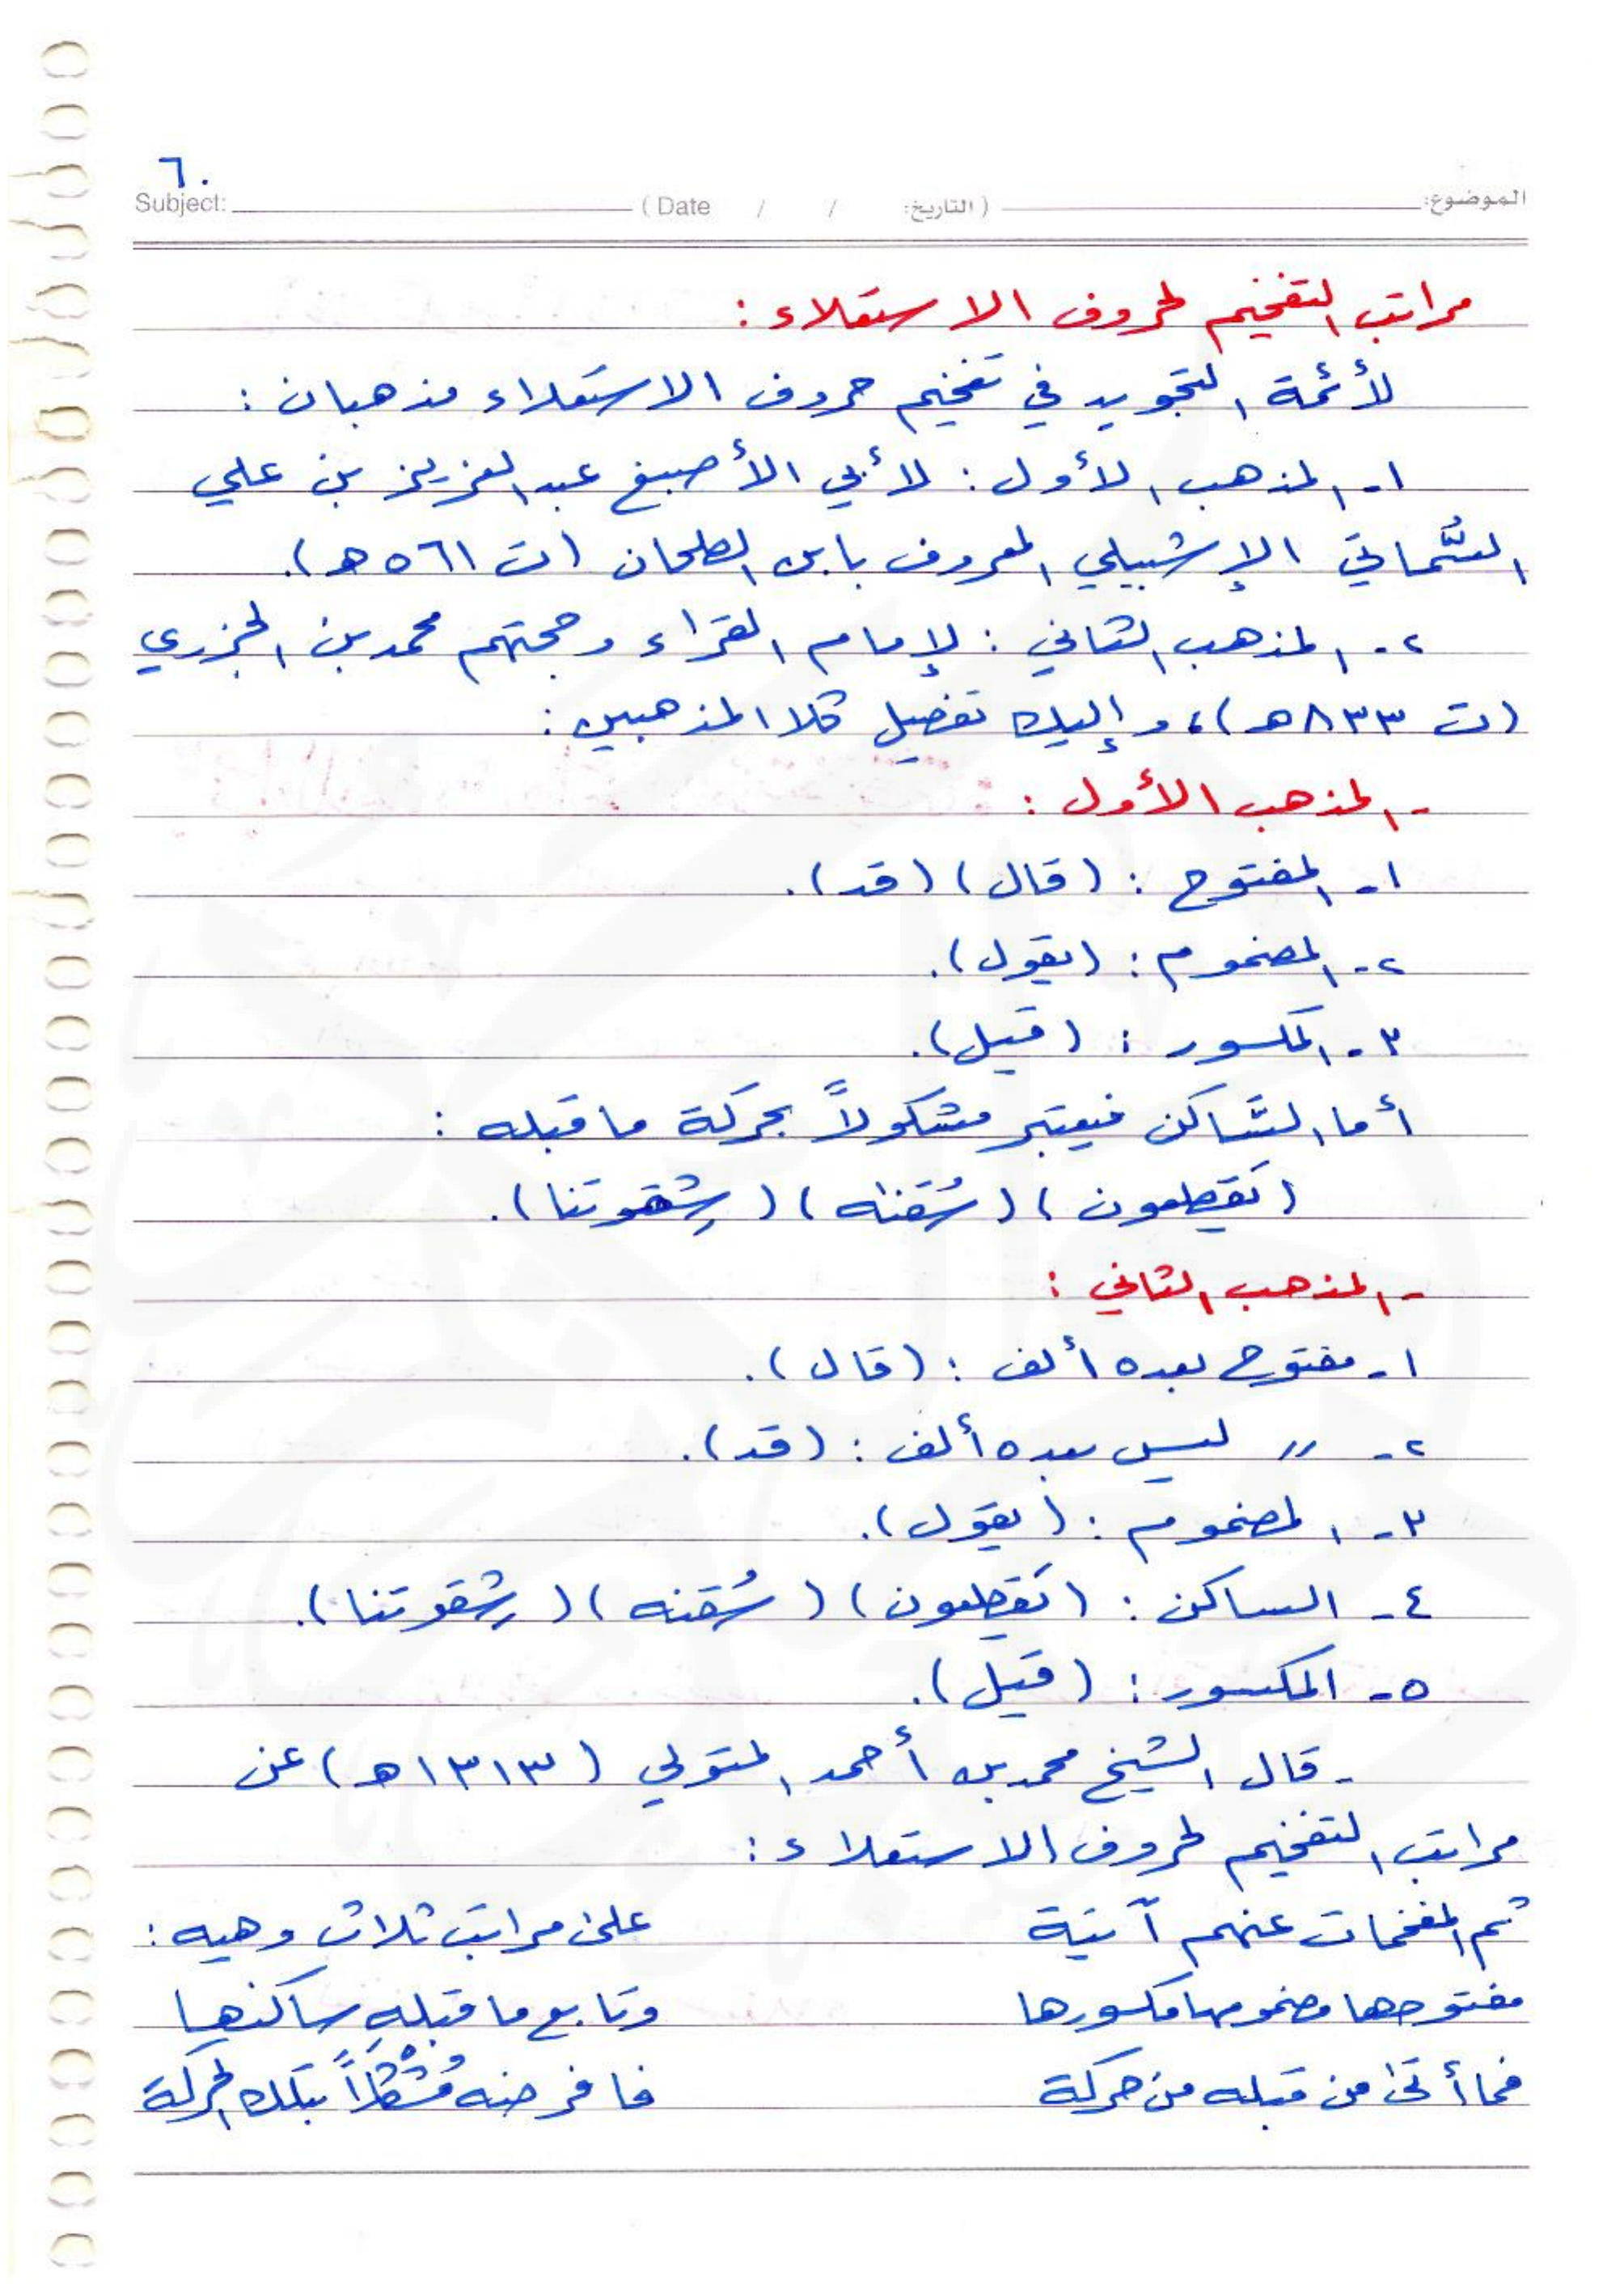 ٦٠
Subject: ( Date / / التاريخ: ) الموضوع:
مراتب التفخيم لحروف الاستعلاء :
لأئمة التجويد في تفخيم حروف الاستعلاء مذهبان :
١- المذهب الأول : لأبي الأصبغ عبد العزيز بن علي
السُّماتي الإشبيلي المعروف بابن الطحان (ت ٥٦١ هـ).
٢- المذهب الثاني : لإمام القرّاء وحجتهم محمد بن الجزري
(ت ٨٣٣ هـ)، وإليك تفصيل كلا المذهبين :
- المذهب الأول :
١- المفتوح : (قال) (قد).
٢- المضموم : (يقول).
٣- المكسور : (قيل).
أما السَّاكن فيعتبر مشكولاً بحركة ما قبله :
(يَقطعون) (سُقناه) (شِقوتنا).
- المذهب الثاني :
١- مفتوح بعده ألف : (قال).
٢- 〃 ليس بعده ألف : (قد).
٣- المضموم : (يقول).
٤- الساكن : (يَقطعون) (سُقنه) (شِقوتنا).
٥- المكسور : (قيل).
- قال الشيخ محمد بن أحمد المتولي (١٣١٣ هـ) عن
مراتب التفخيم لحروف الاستعلاء :
ثم المفخمات عنهم آتية على مراتب ثلاث وهيه :
مفتوحها مضمومها مكسورها وتابع ما قبله ساكنها
فما أتى من قبله من حركة فافرضنه مُشْكَلاً بتلك الحركة